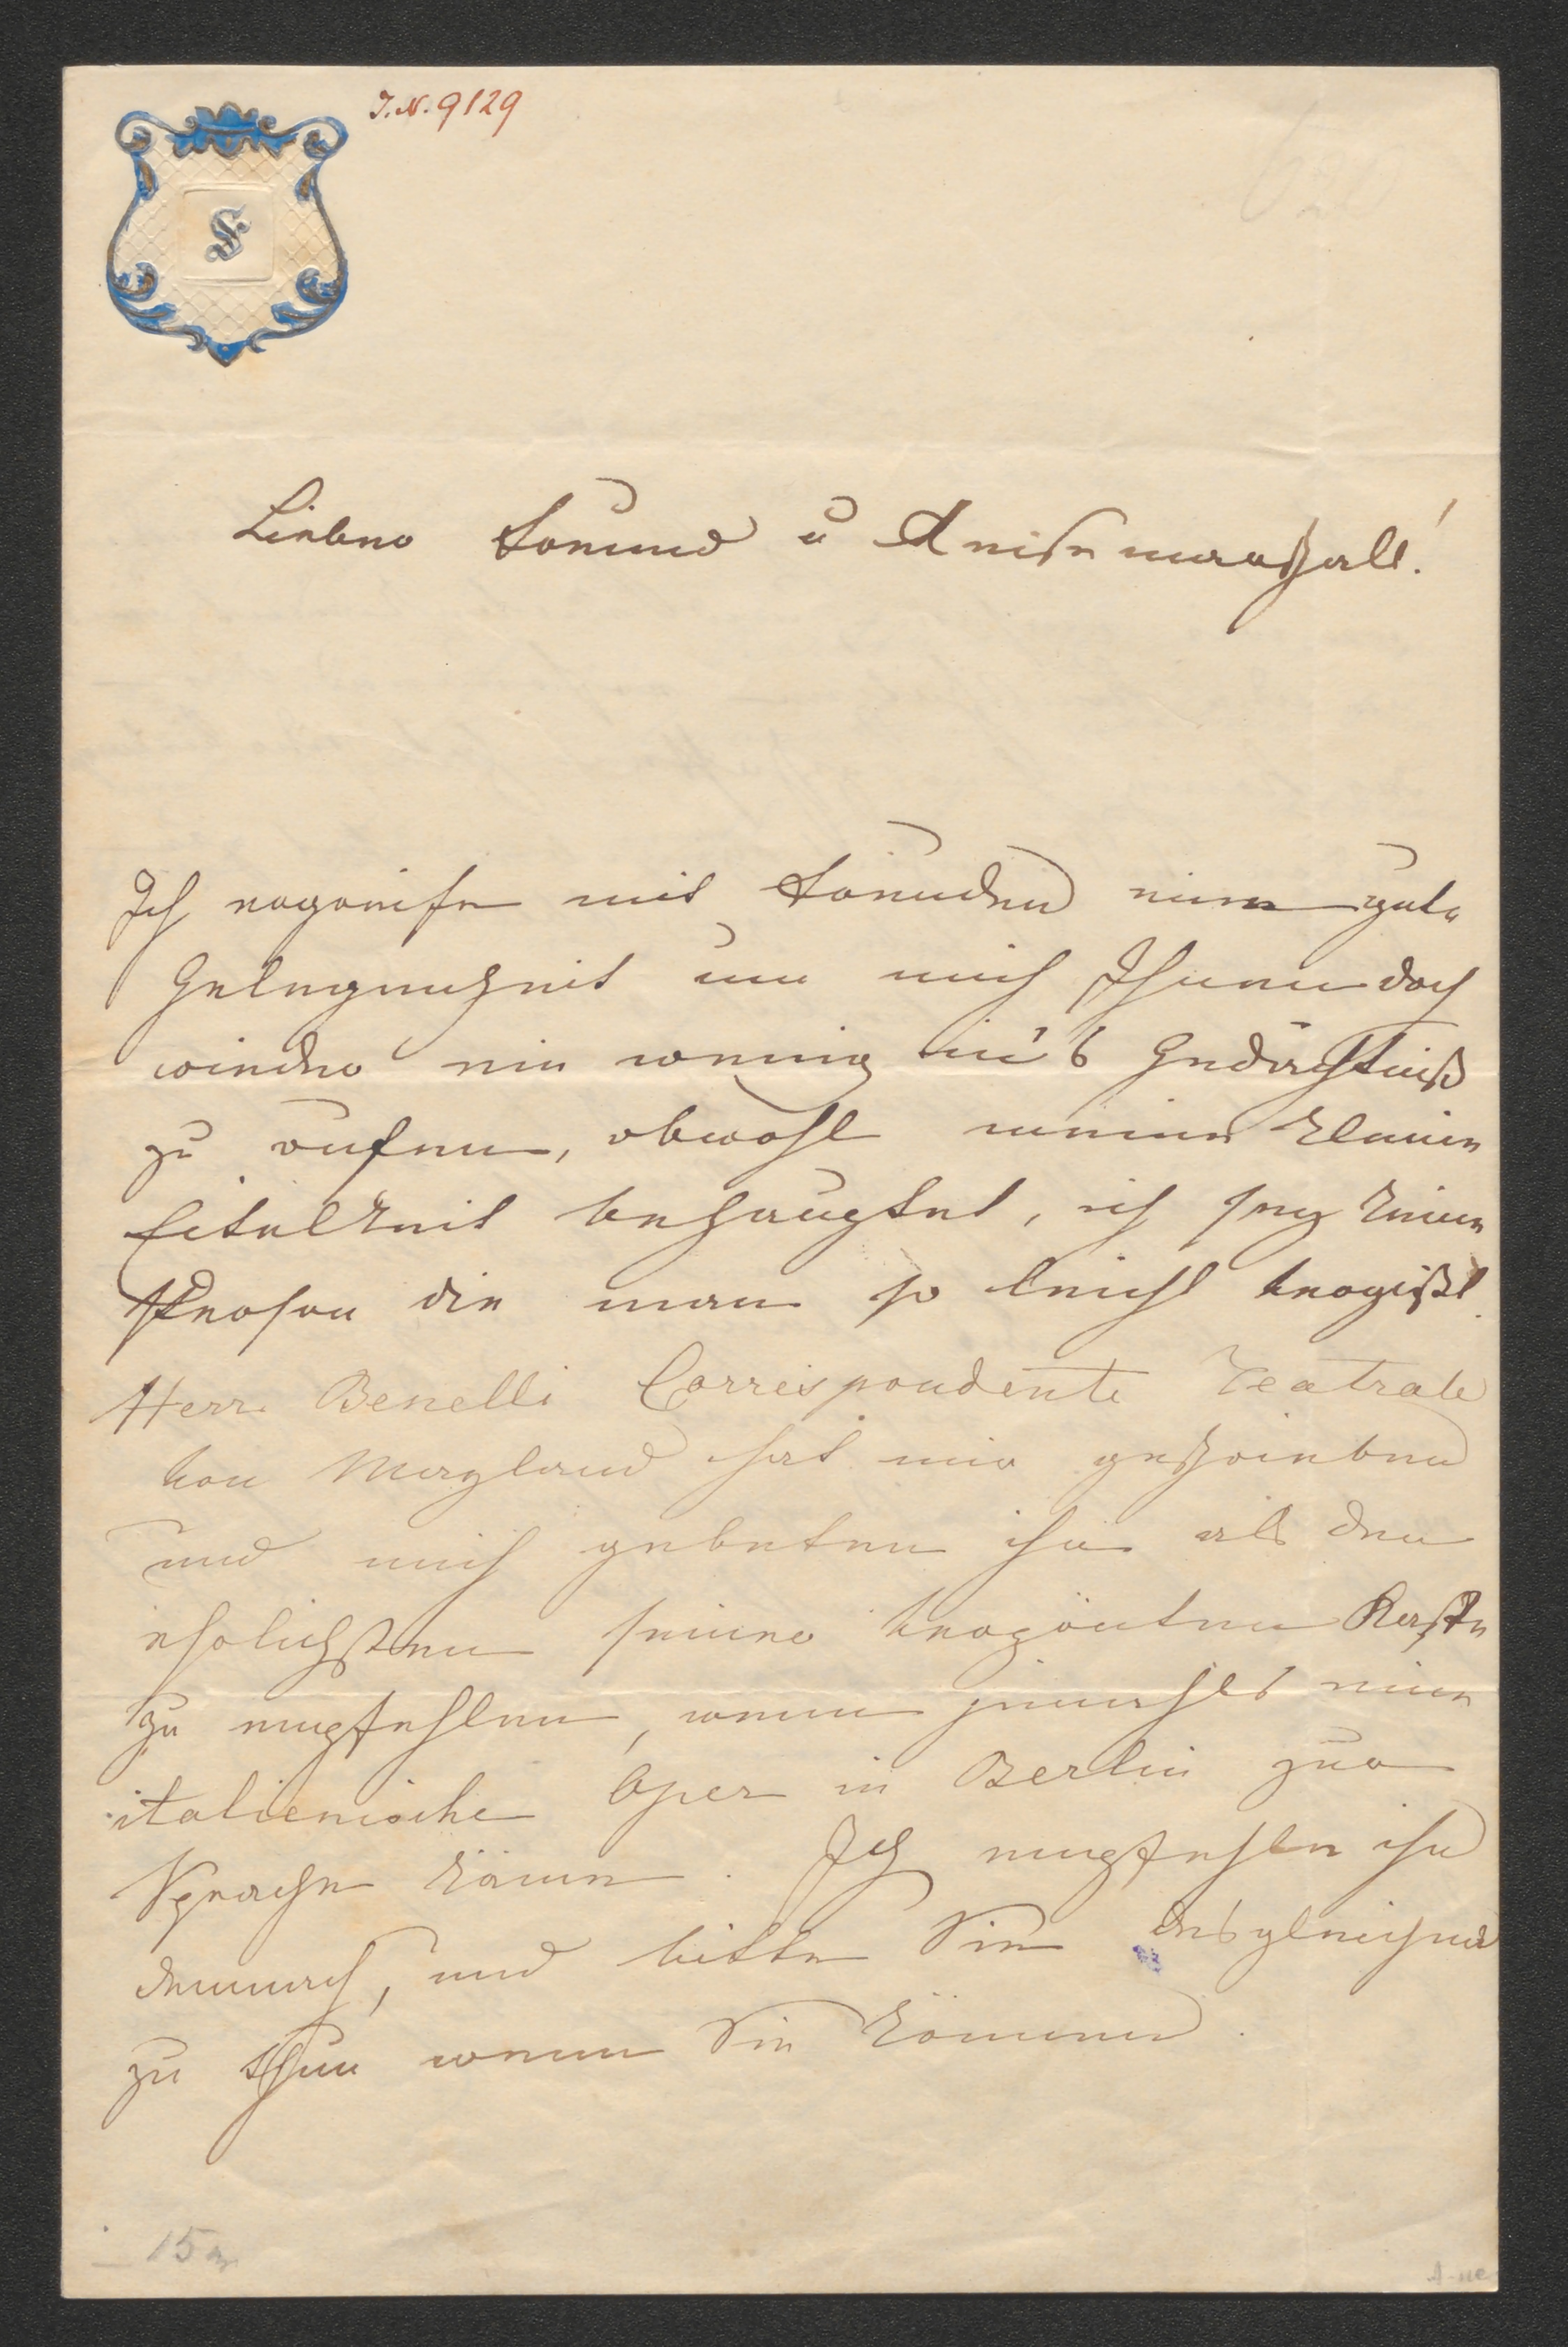 I.N. 9129
F
Lieber Freund u Reisemarschall!
Ich ergreife mit Freuden eine gute
Gelegenheit um mich Ihnen doch
wieder ein wenig in's Gedächtniß
zu rufen, obwohl meine kleine
Eitelkeit behauptet, ich sey keine
Person die man so leicht vergißt.
Herr Benelli Correspondente Teatrale
von Mayland hat mir geschrieben
und mich gebeten ihn als den
ehrlichsten seiner Kaste
zu empfehlen, wenn jemahls eine
italienische Oper in Berlin zur
Sprache käme. Ich empfehle ihn
demnach, und bitte Sie desgleichen
zu thun wenn Sie können.
15